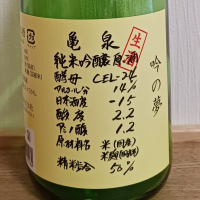 亀泉
生
純米吟醸原酒
酵母 CEL-24
アルコール分 14%
日本酒度 -15
酸度 2.2
アミノ酸 1.2
原材料名 米(国産)
米麹(国産米)
精米歩合 50%
吟の夢